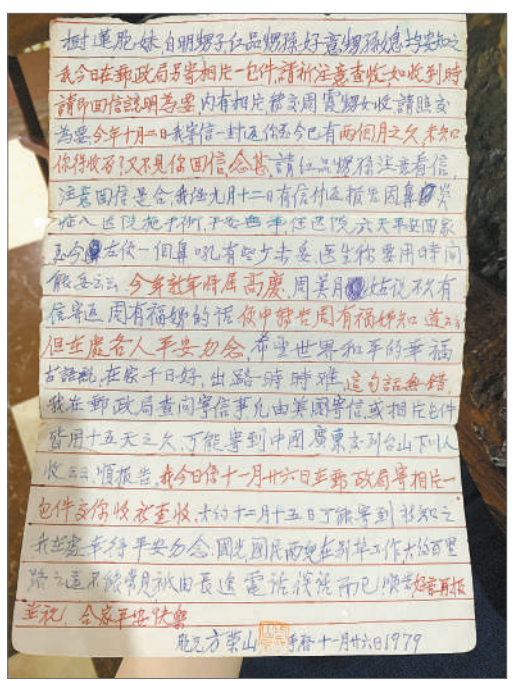 樹蓮胞妹,自明甥子,红品甥孫,好意甥孫媳均安知之
我今日在郵政局另寄相片一包件,請祈注意查收,如收到時
請即回信說明為要,内有相片轉交周霓甥女收,請照交
為要,今年十月二日我寄信一封返你至今已有兩個月之久,未知
你得收否?又不見你回信,念甚,請红品甥孫注意看信,
注意回信是合,我在九月十二日有信付返報告因鼻炎
症入医院施手術,平安無事,住医院六天平安回家
至今左伙一個鼻吼有些少未妥,医生称要用時间
能妥云云 今年新年将届高慶,周美月姑説不久有
信寄返周有福姊的话 後中轉告周有福姊知道云云
但在處各人平安勿念,希望世界和平的幸福
古語説,在家千日好,出路一時時难,這句話無錯,
我在郵政局查问寄信事凡由美國寄信,或相片包件
皆用十五天之久,可能寄到中國廣東交到台山下川人
收云云,順报告,我今日係十一月廿六日在郵政局寄相片一
包件交你收祈查收,大约十二月十五日可能寄到 祈知之
我在處幸得平安勿念,國光國民兩兒在别埠工作,大约百里
路之遠不能常見祇由長途電話談话而已 順告,好音再报
並祝! 合家平安快樂
胞兄方荣山 手啓十一月廿六日1979